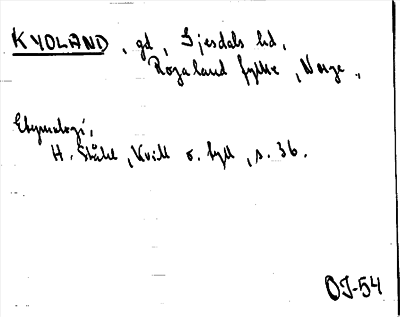 KYDLAND, gd, Gjesdals hd,
Rogaland fylke, Norge,
Etymologi,
H. Ståhl, Kvill o. tyll, s. 36.
OJ-54